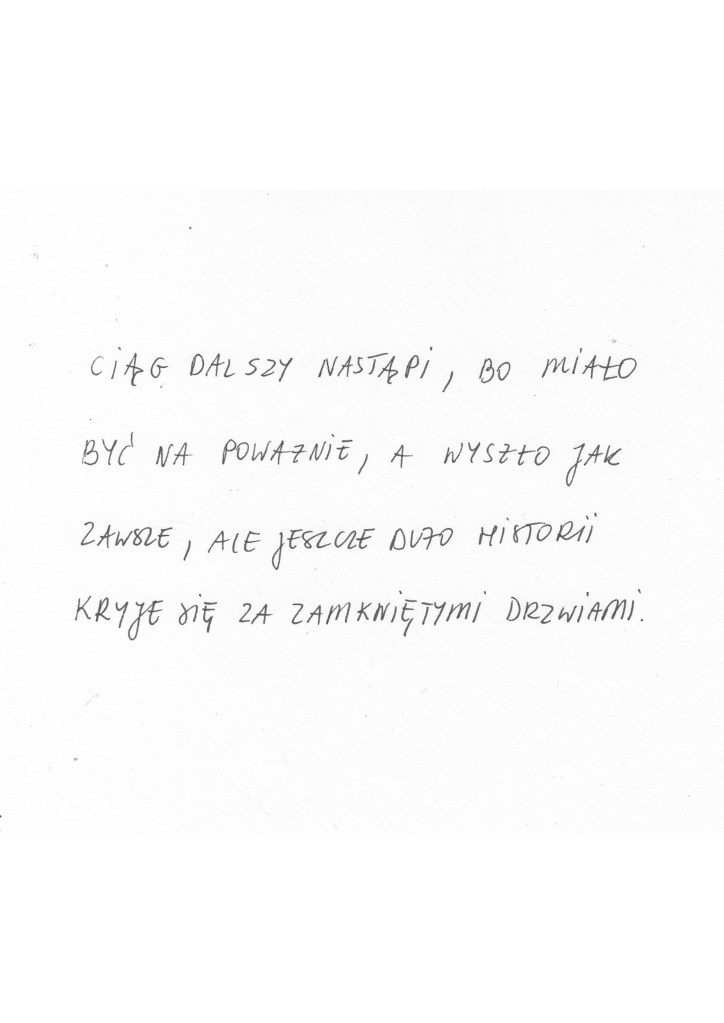 CIĄG DALSZY NASTĄPI, BO MIAŁO
BYĆ NA POWAŻNIE, A WYSZŁO JAK
ZAWSZE, ALE JESZCZE DUŻO HISTORII
KRYJE SIĘ ZA ZAMKNIĘTYMI DRZWIAMI.